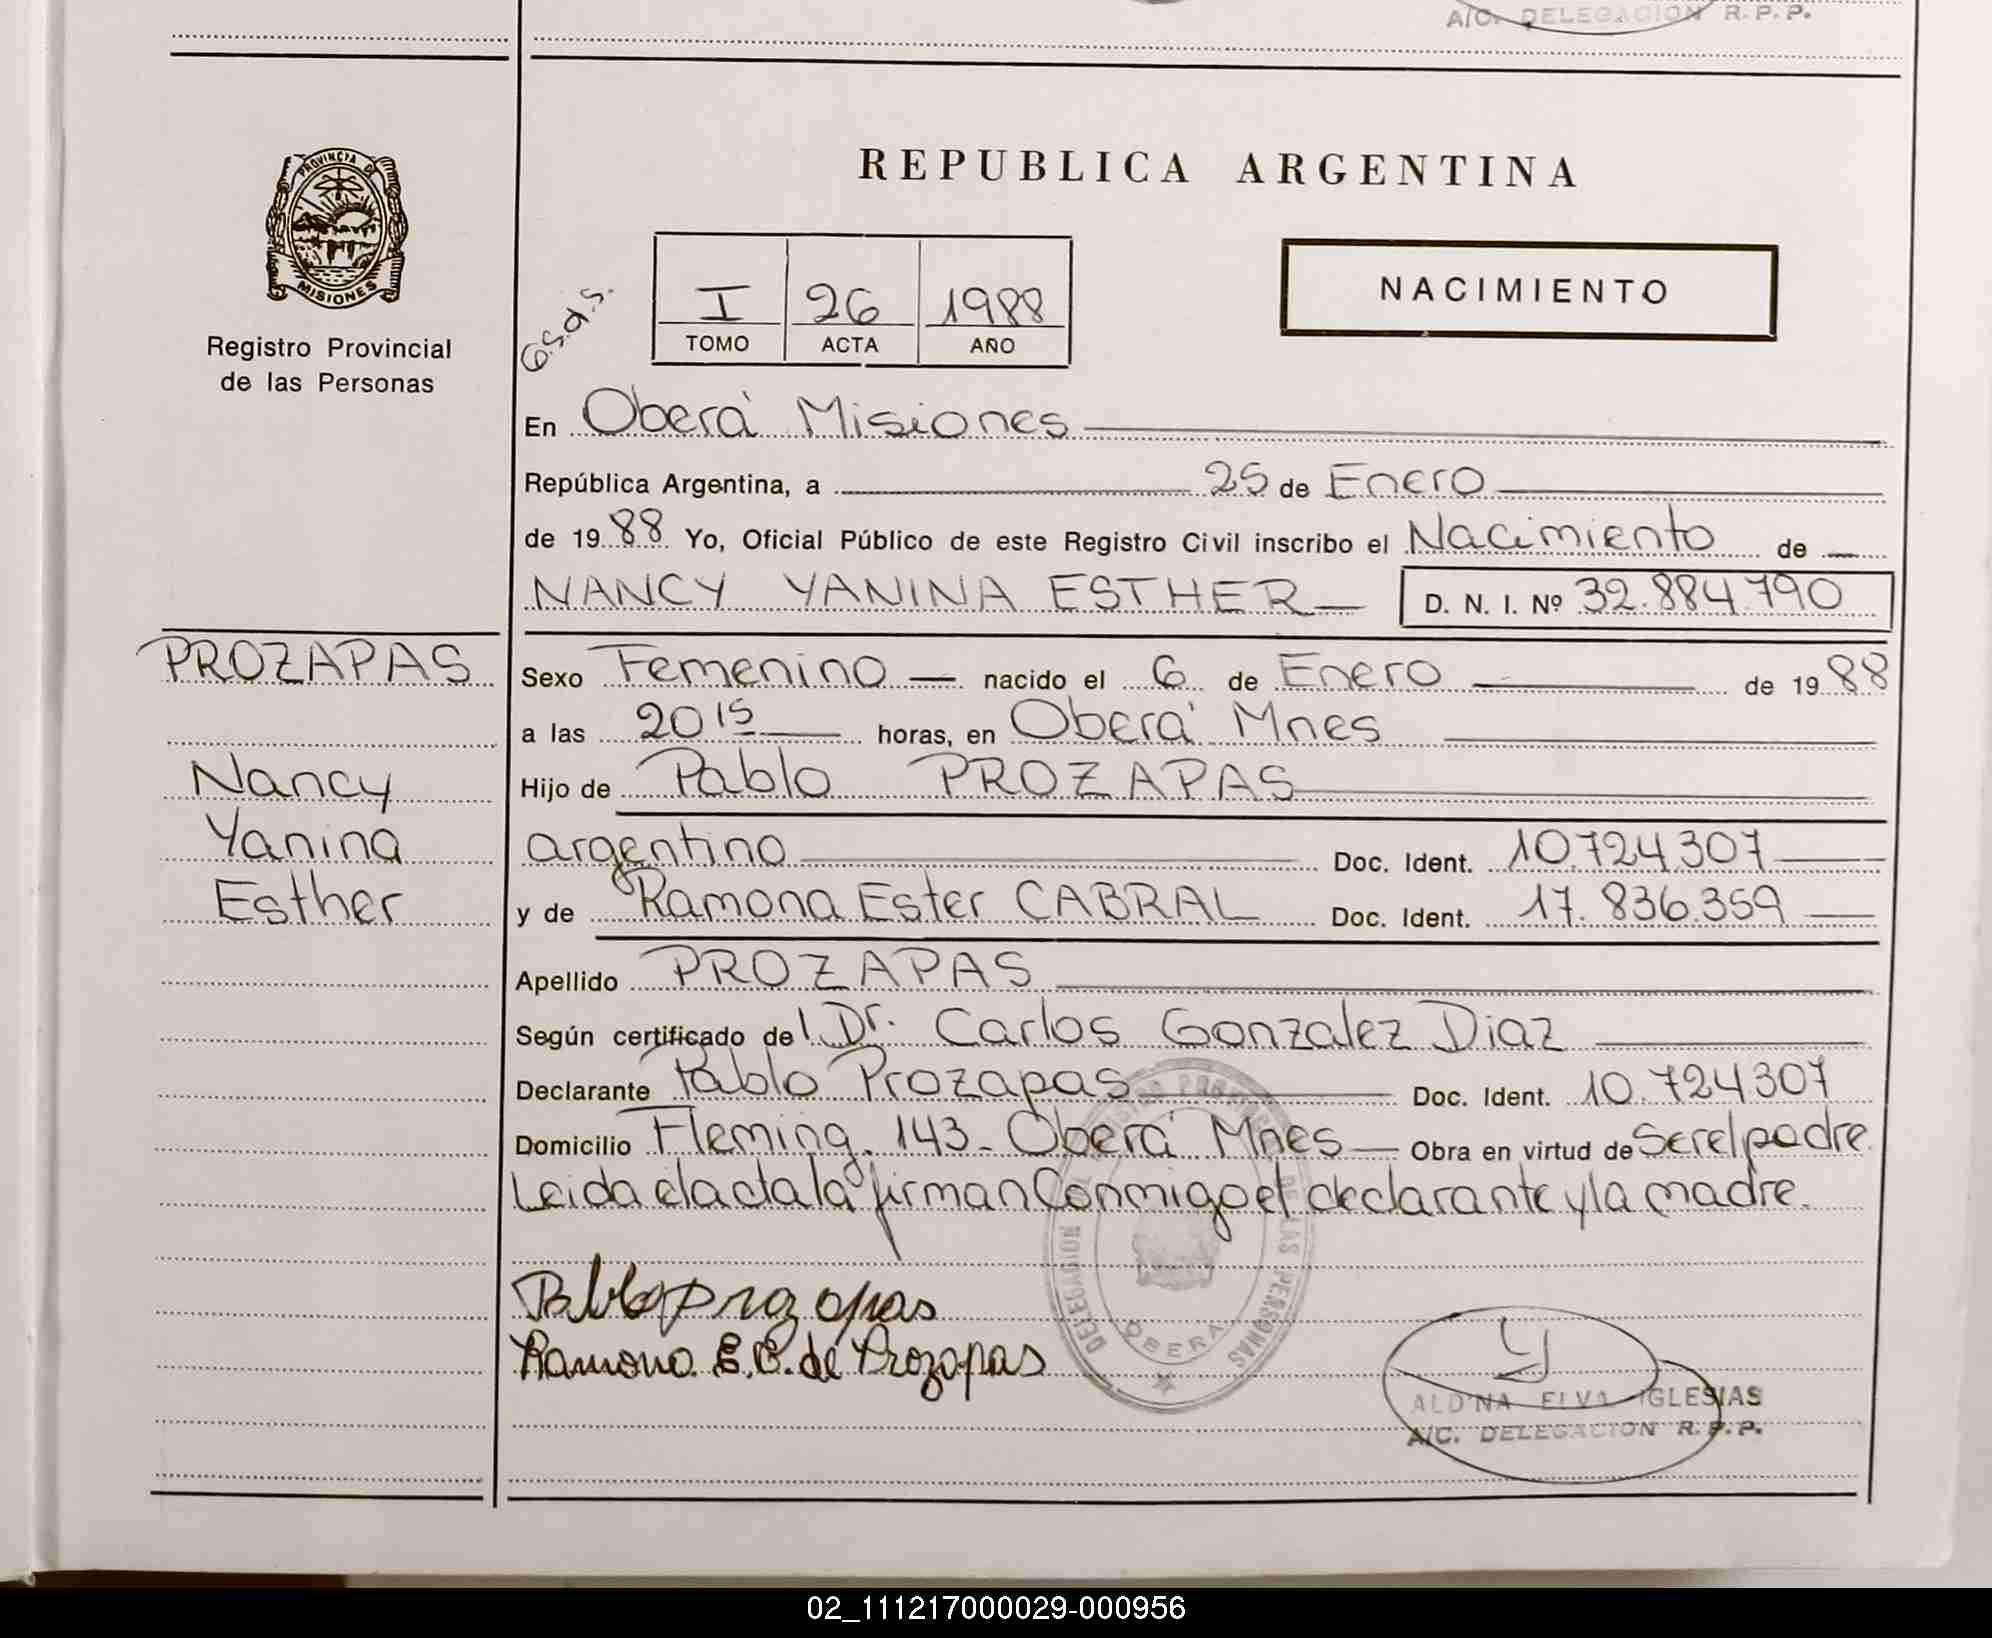 A/C. DELEGACION R. P. P.
PROVINCIA DE
MISIONES
Registro Provincial
de las Personas
REPUBLICA ARGENTINA
I 26 1988
TOMO ACTA AÑO
NACIMIENTO
En Oberá Misiones
República Argentina, a 25 de Enero
de 1988 Yo, Oficial Público de este Registro Civil inscribo el Nacimiento de
NANCY YANINA ESTHER D. N. I. Nº 32.884.790
PROZAPAS
Nancy
Yanina
Esther
Sexo Femenino nacido el 6 de Enero de 1988
a las 20 15 horas, en Oberá Mnes
Hijo de Pablo PROZAPAS
argentino Doc. Ident. 10.724.307
y de Ramona Ester CABRAL Doc. Ident. 17.836.359
Apellido PROZAPAS
Según certificado del Dr. Carlos Gonzalez Diaz
Declarante Pablo Prozapas Doc. Ident. 10.724307
Domicilio Fleming. 143 - Oberá Mnes Obra en virtud de Ser el padre
Leida el acta la firman Conmigo el declarante y la madre.
Pablo Prozapas
Ramona E. C. de Prozapas
DELEGACION DE LAS PERSONAS
OBERA
ALDINA ELVA IGLESIAS
A/C. DELEGACION R. P. P.
02_111217000029-000956